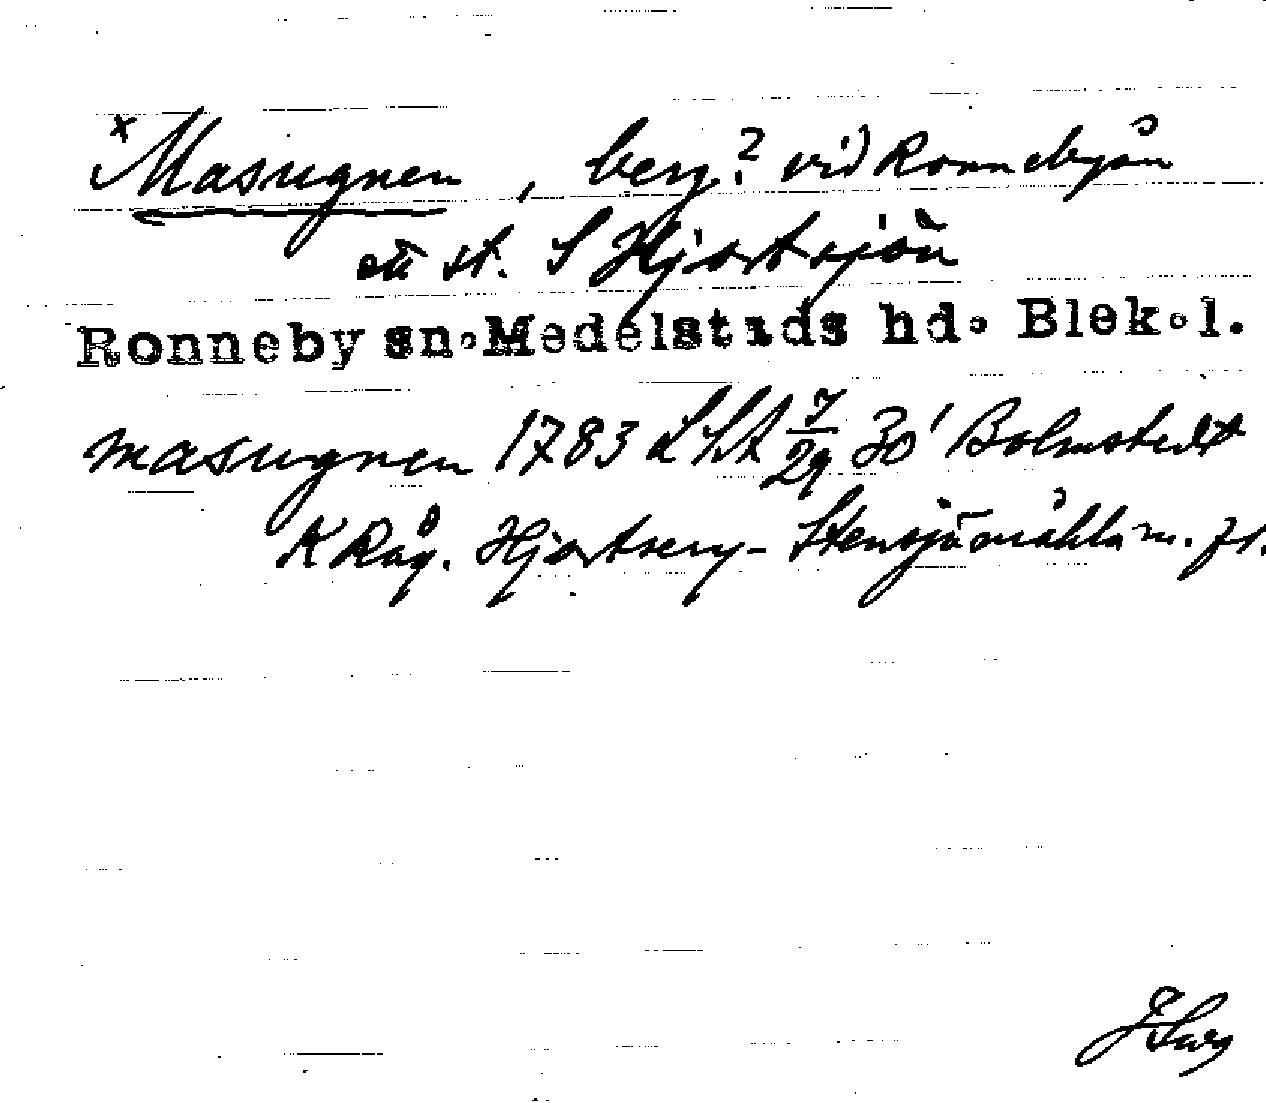 x Masugnen, berg? vid Ronnebyån
ett st. S Hjortsjön
Ronneby sn. Medelstads hd. Blek. l.
masugnen 1783 LSA 7/29 30' Bolmstedt
K Råg. Hjortserg- Stensjömåhla m. fl.